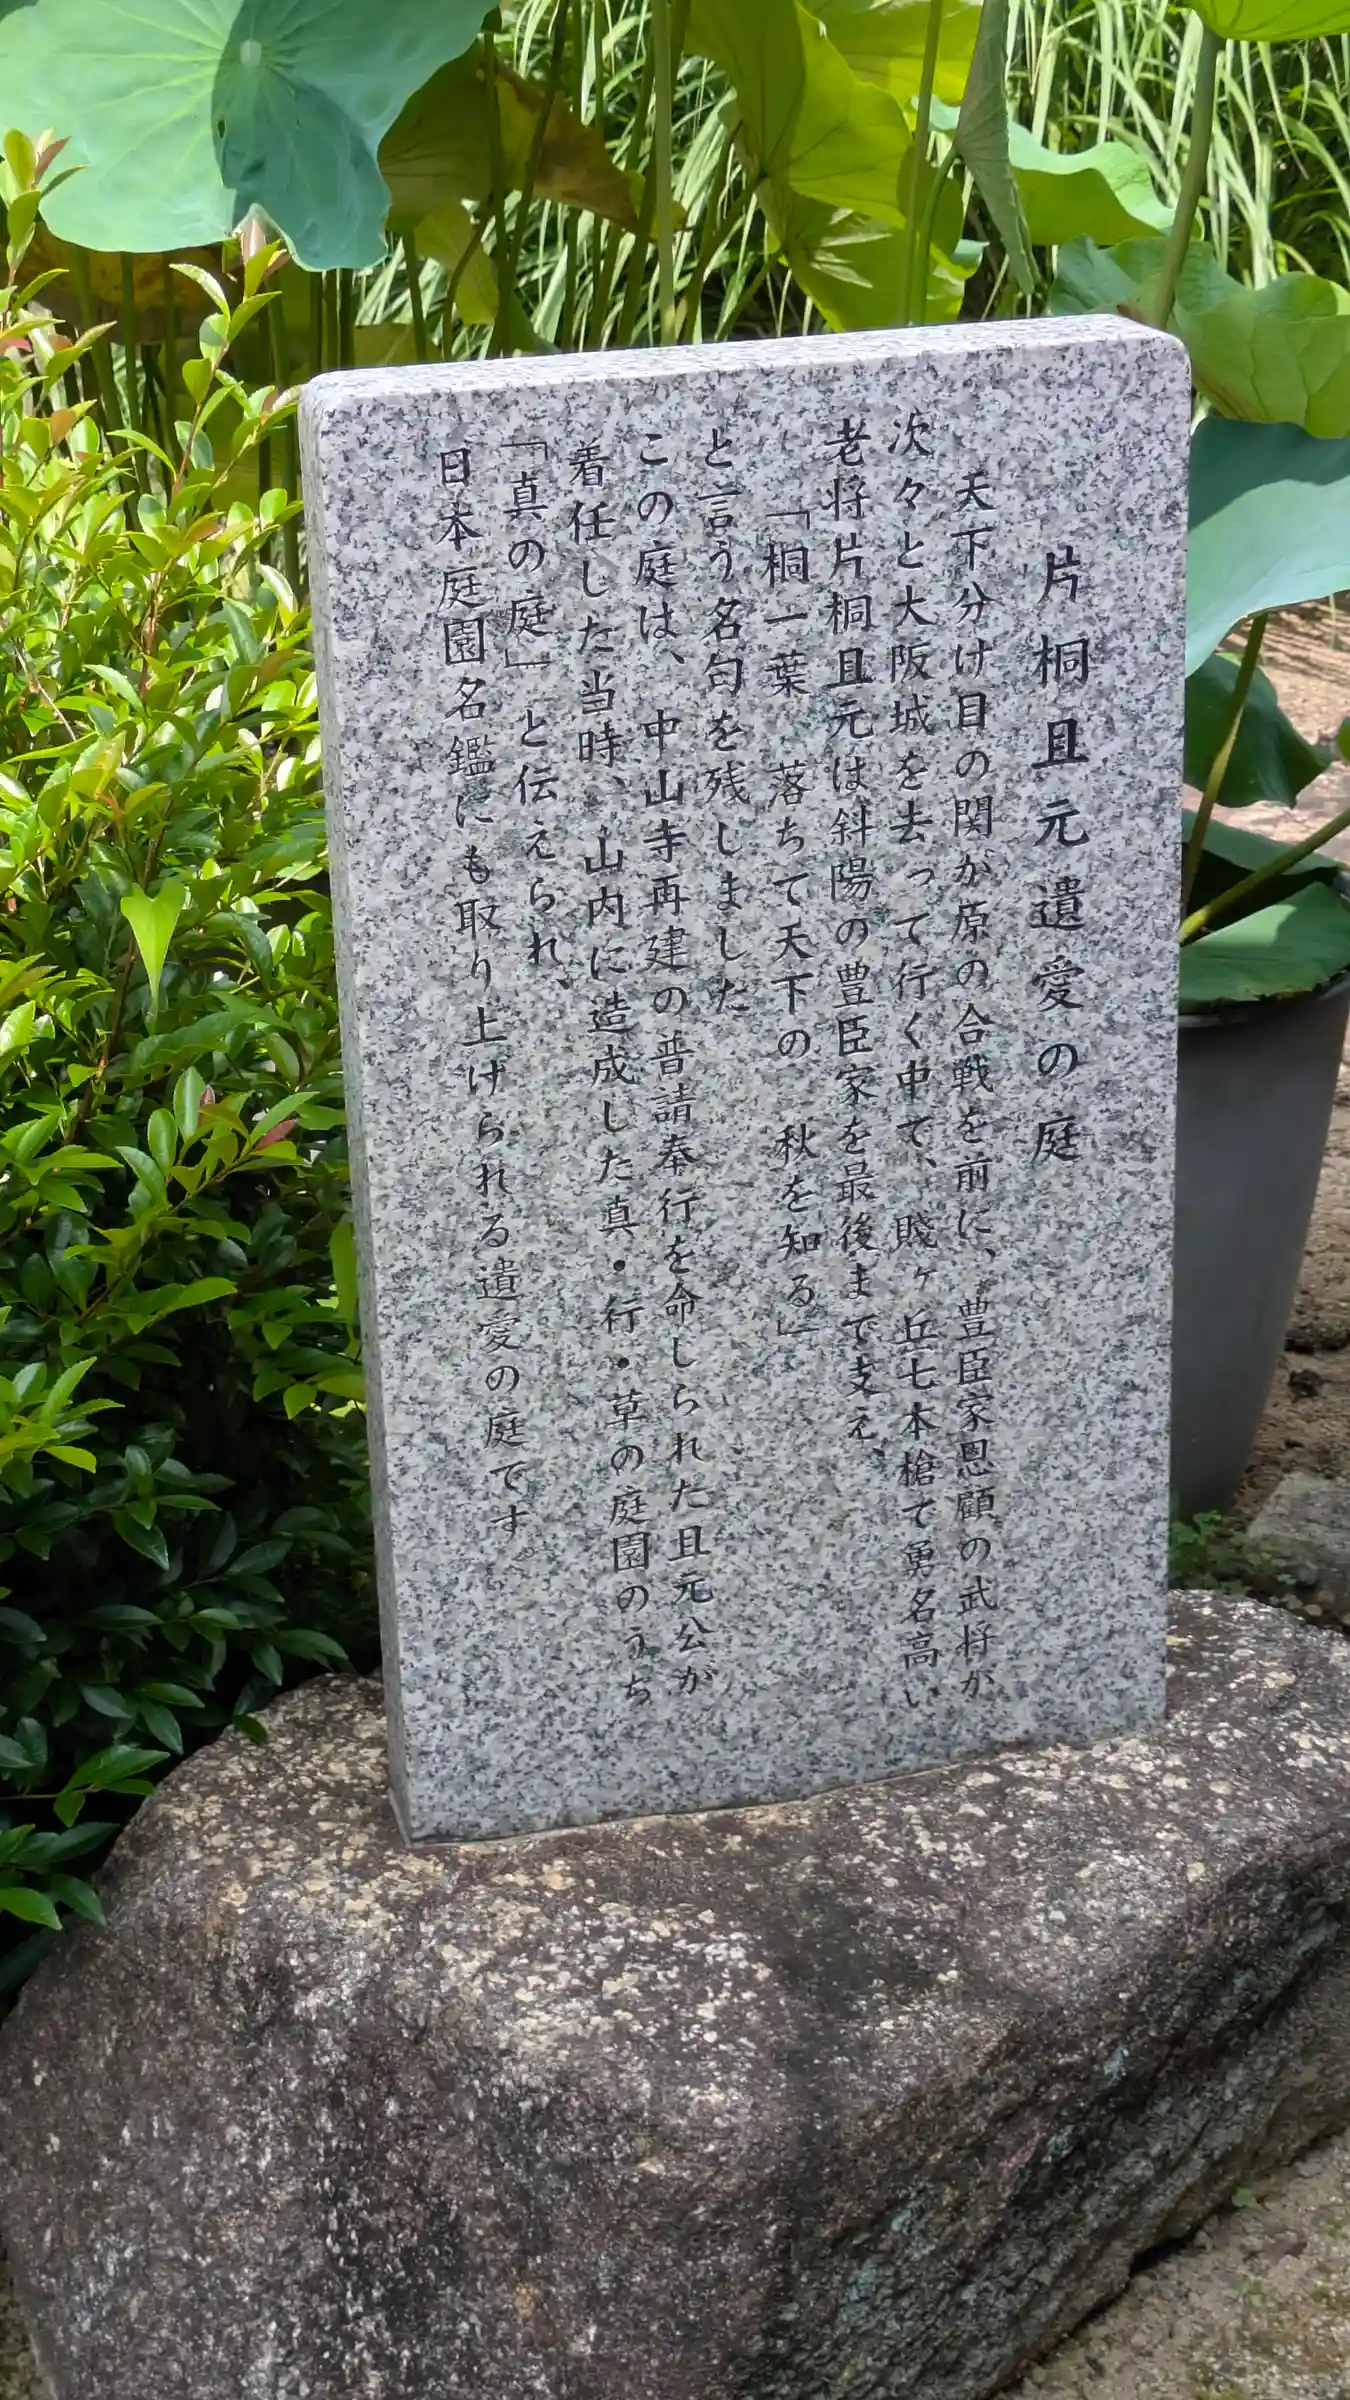 片桐且元遺愛の庭
天下分け目の関が原の合戦を前に、豊臣家恩顧の武将が
次々と大阪城を去って行く中で、賤ヶ丘七本槍で勇名高い
老将片桐且元は斜陽の豊臣家を最後まで支え、
「桐一葉 落ちて天下の 秋を知る」
と言う名句を残しました
この庭は、中山寺再建の普請奉行を命じられた且元公が
着任した当時、山内に造成した真・行・草の庭園のうち
「真の庭」と伝えられ、
日本庭園名鑑にも取り上げられる遺愛の庭です。